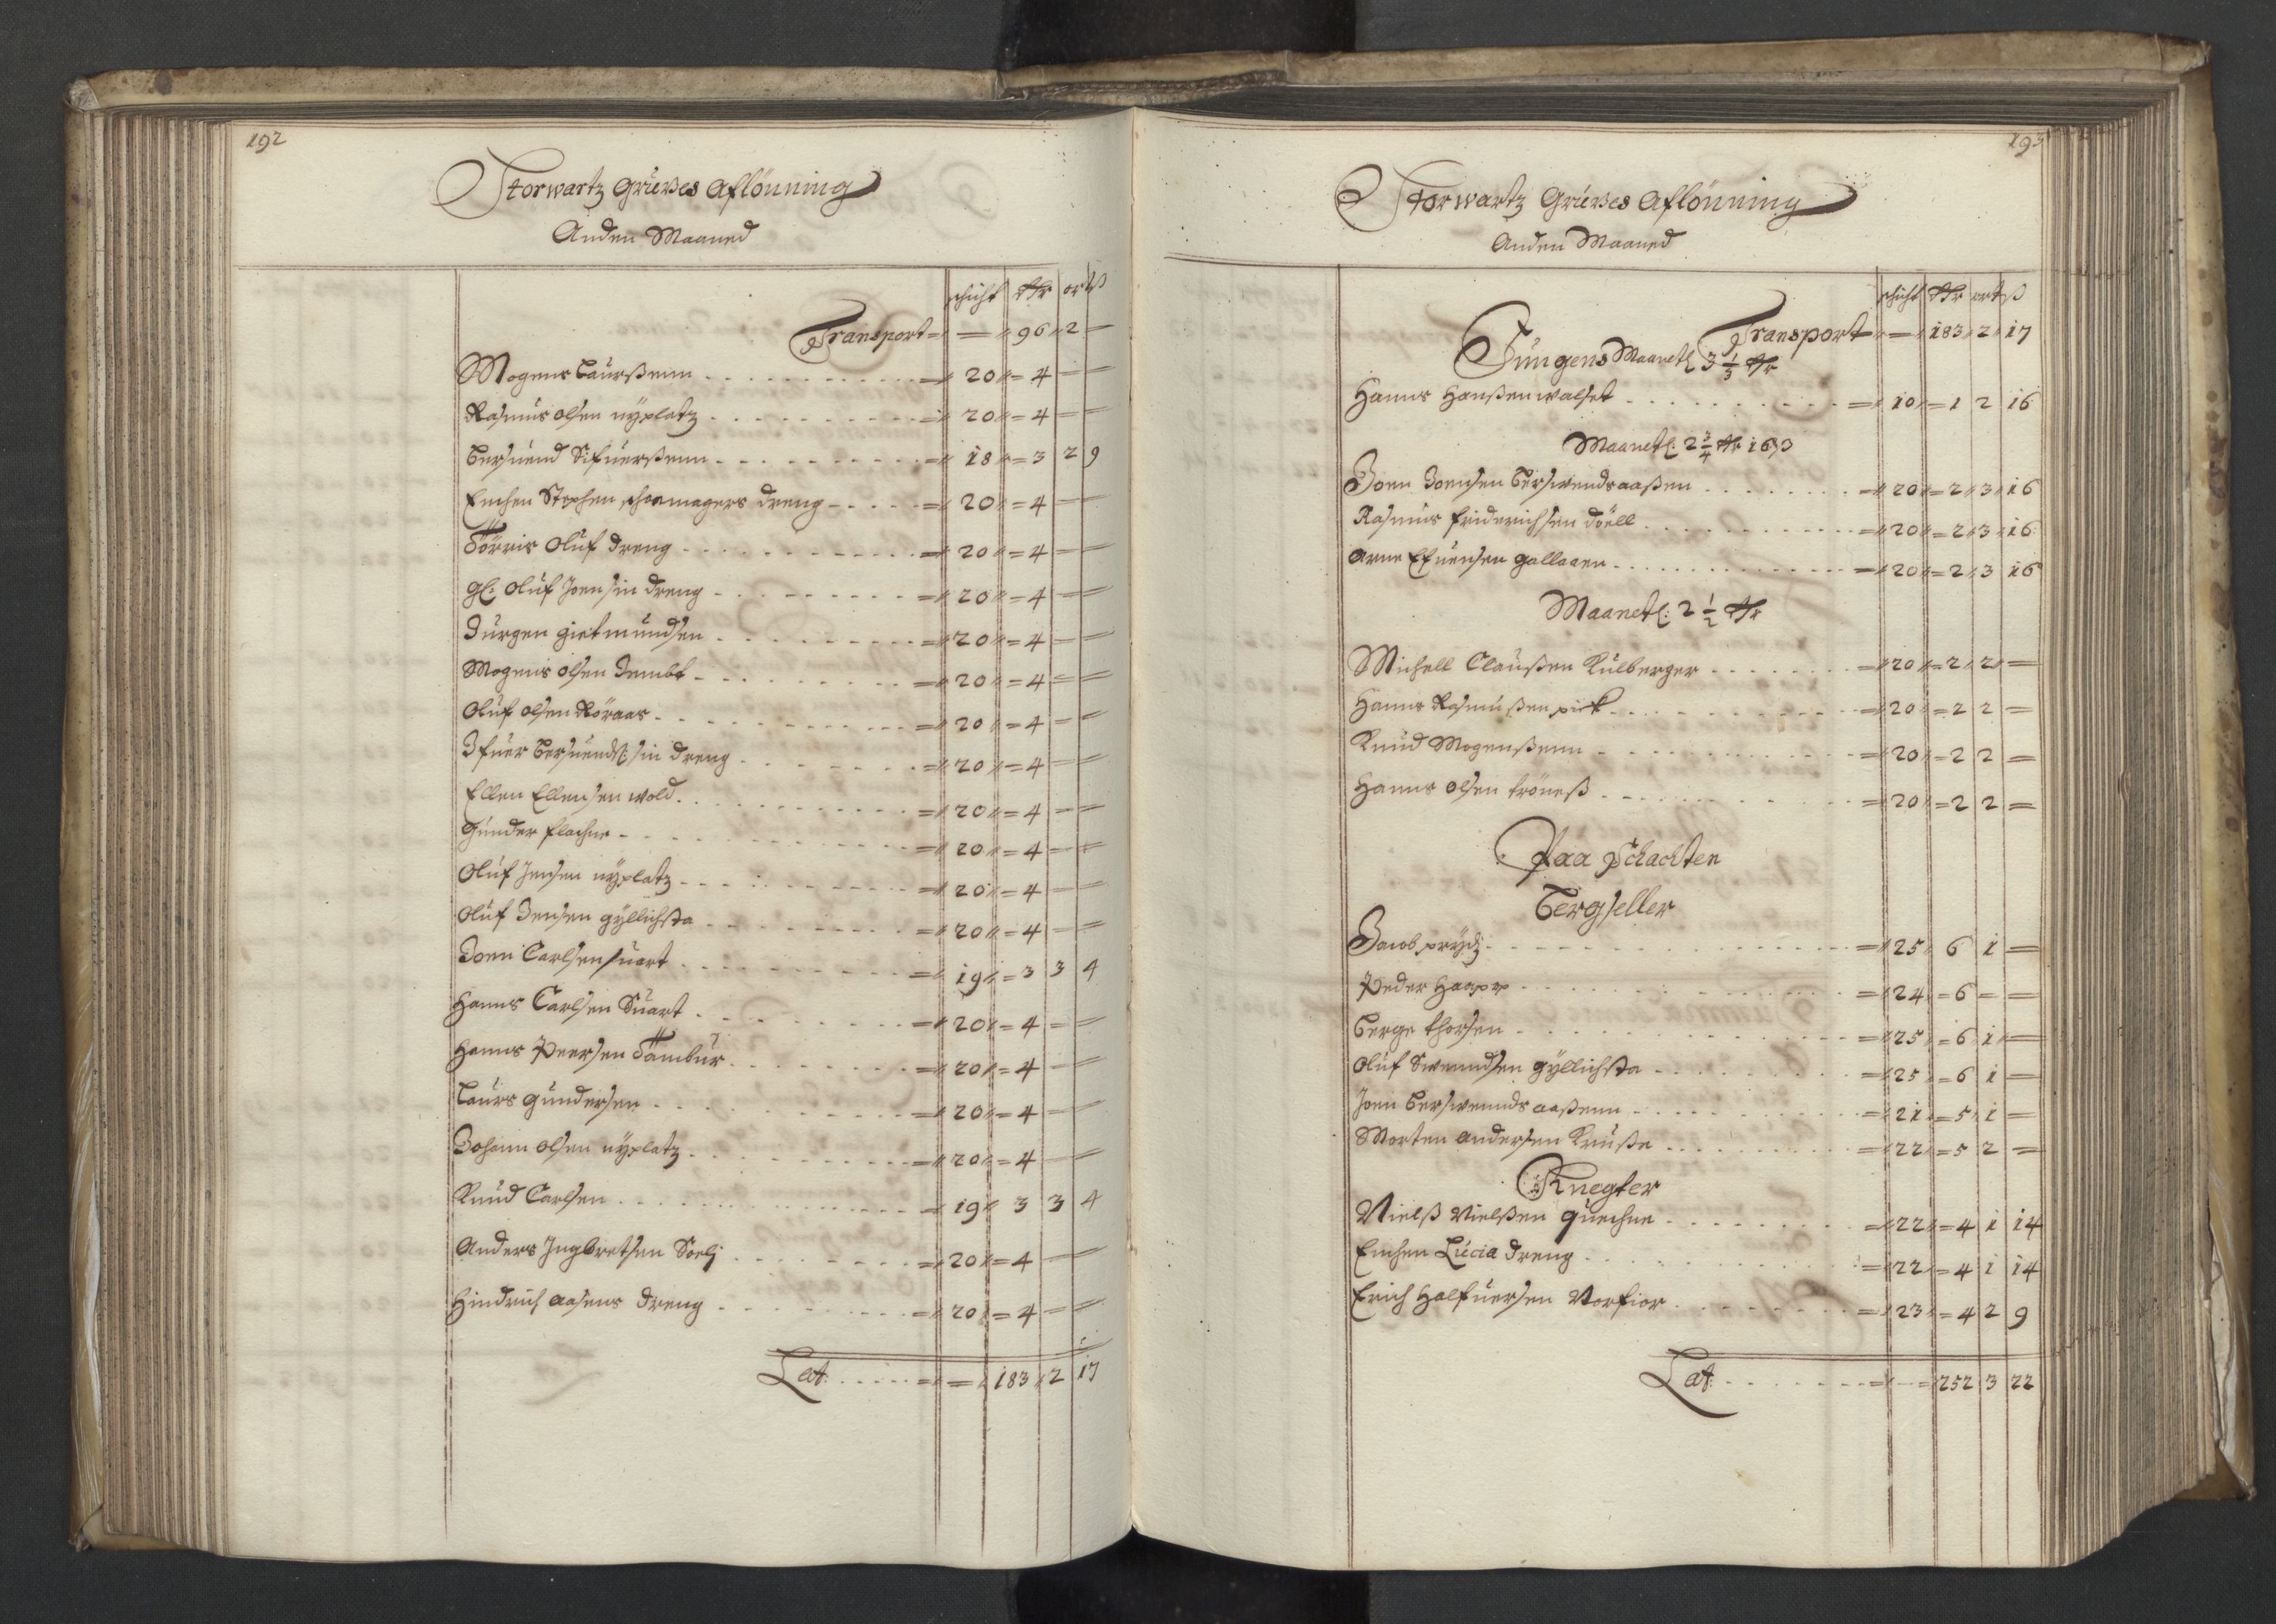 192
Storwartz Grubes Aflönning
Anden Maaned
schicht Rdr ort ß
Transport = — 96 2 —
Mogens Laurßenn - - - 20 = 4 — —
Rasmus Olsen nyplatz - - - 20 = 4 — —
Bersuend Sifuerßenn - - - 18 = 3 2 9
Enchen Stephen schomagers dreng - - - 20 = 4 — —
Törris Oluf dreng - - - 20 = 4 — —
gl: Oluf Joen sin dreng - - - 20 = 4 — —
Jürgen gietmundsen - - - 20 = 4 — —
Mogens Olsen Jembt - - - 20 = 4 — —
Oluf Olsen Röraas - - - 20 = 4 — —
Ifuer Bersuends: sin dreng - - - 20 = 4 — —
Ellen Ellensen wold - - - 20 = 4 — —
Gunder flachne - - - 20 = 4 — —
Oluf Jensen nyplatz - - - 20 = 4 — —
Oluf Jensen gyllichsta - - - 20 = 4 — —
Joen Carlsen suart - - - 19 = 3 3 4
Hanns Carlsen Suart - - - 20 = 4 — —
Hanns Peersen Tambur - - - 20 = 4 — —
Laurs gundersen - - - 20 = 4 — —
Johann Olsen nyplatz - - - 20 = 4 — —
Knud Carlsen - - - 19 3 3 4
Anders Ingbretsen Soelj - - - 20 = 4 — —
Hindrich aasens dreng - - - 20 = 4 — —
Lat: - - - — 183 2 17
193
Storwartz Grubes Aflönning
Anden Maaned
schicht Rdr ort ß
Transport — 183 2 17
Jungens Maanetl 3 1/3 Rdr
Hanns Hanßen walset - - - 10 = 1 2 16
Maanetl: 2 3/4 Rdr 16 ß
Joen Joensen Berswendsaaßen - - - 20 = 2 3 16
Rasmus friderichsen döell - - - 20 = 2 3 16
Arne Efuensen gallaaen - - - 20 = 2 3 16
Maanetl: 2 1/2 Rdr
Michell Claußen Kulberger - - - 20 = 2 2 —
Hanns Rasmußen pick - - - 20 = 2 2 —
Knud Mogenßenn - - - 20 = 2 2 —
Hanns Olsen tröneß - - - 20 = 2 2 —
Paa Schachten
Bergseller
Jacob prydz - - - 25 6 1 —
Peder Haapp - - - 24 = 6 — —
Berge thorsen - - - 25 = 6 1 —
Oluf Swendsen gyllichsta - - - 25 = 6 1 —
Joen Berswennds aaßenn - - - 21 = 5 1 —
Morten Andersen Knußa - - - 22 = 5 2 —
Knegter
Nielß Nielßen quechne - - - 22 = 4 1 14
Enchen Lucia dreng - - - 22 = 4 1 14
Erich Halfuersen Norfior - - - 23 = 4 2 9
Lat: - - - — 252 3 22